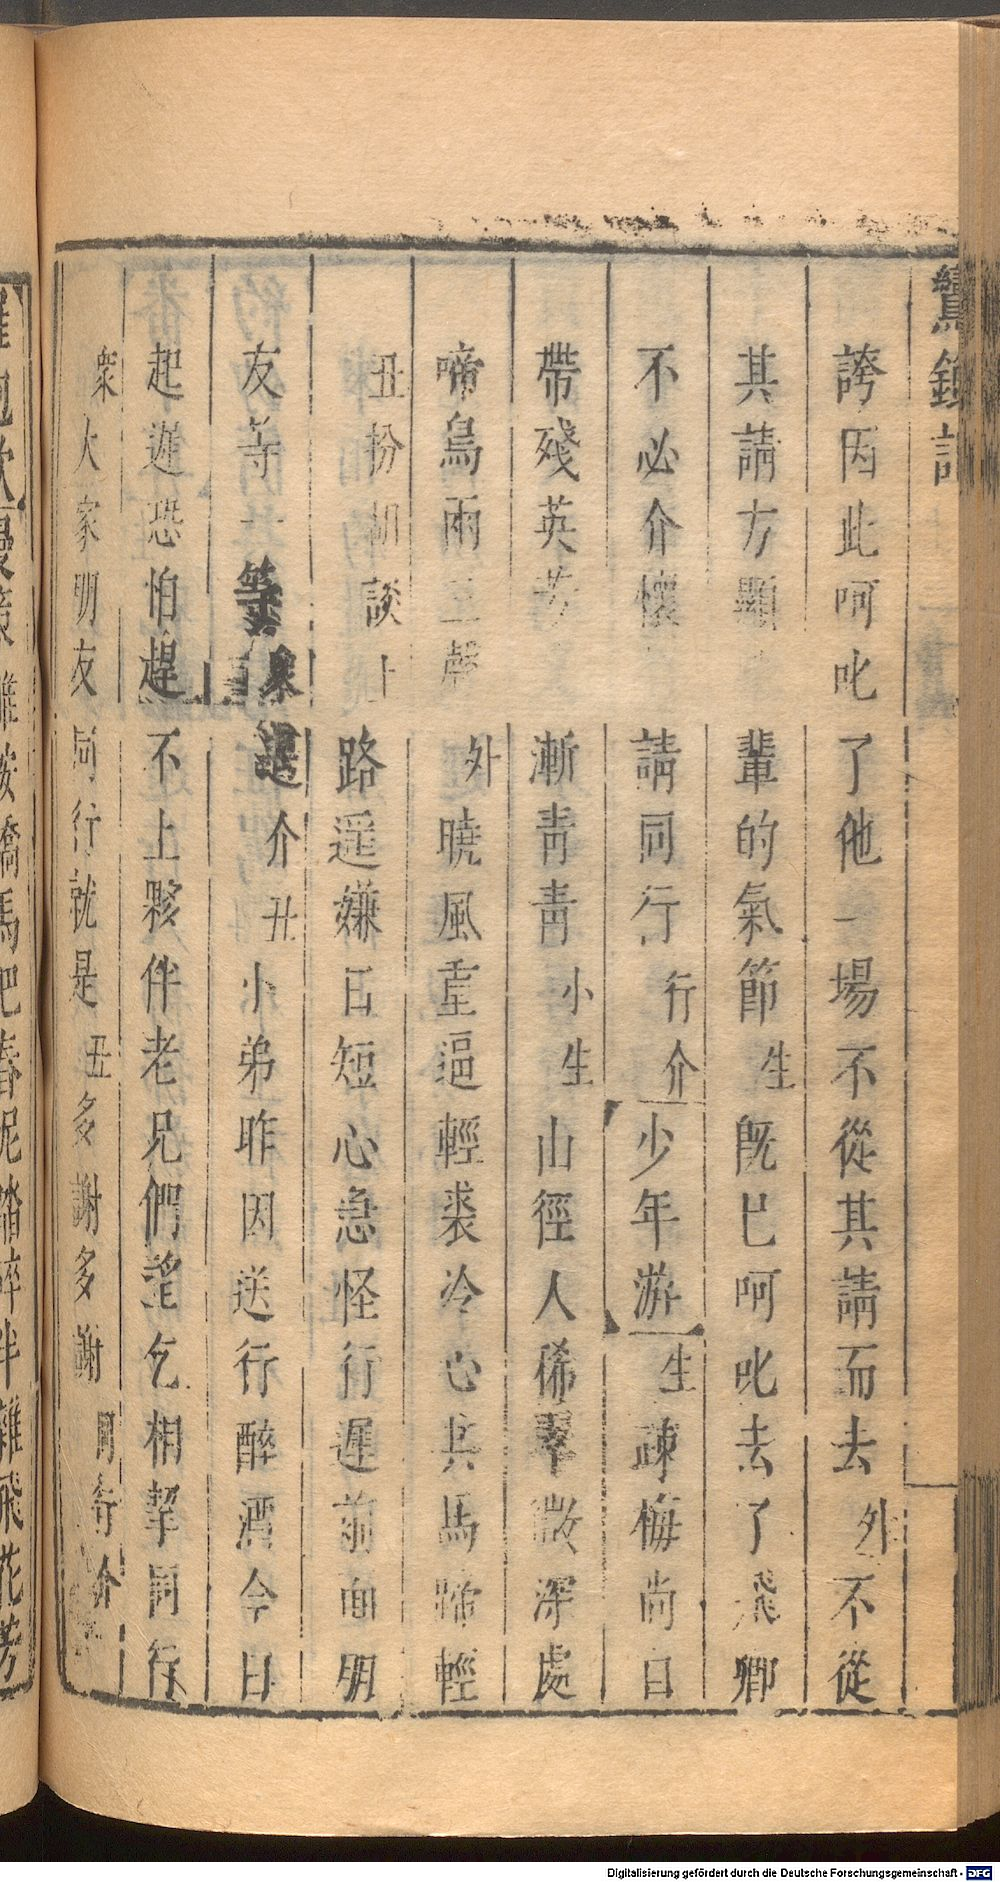 鸞鎞記
誇因此呵叱了他一場不從其請而去外不從
其請方顯輩的氣節生既已呵叱去了飛卿
不必介懷請同行行介少年游生疎梅尚日
帶殘英芳漸青青小生山徑人稀翠微深處
啼鳥兩三聲外曉風重逼輕裘冷心共馬蹄輕
丑扮胡談上路遥嫌日短心急怪行遲前面朋
友等等衆介丑小弟昨因送行醉酒今日
起遲恐怕趕不上夥伴老兄們望乞相挈同行
衆大家朋友同行就是丑多謝多謝同行介
雕鞍驕馬
春泥踏碎
雜飛花
Digitalisierung gefördert durch die Deutsche Forschungsgemeinschaft - DFG